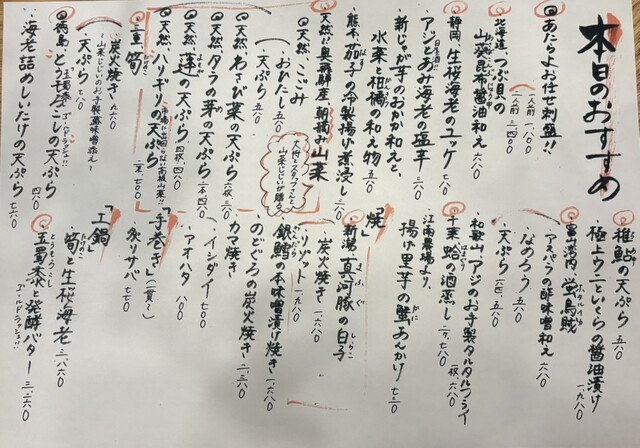 本日のおすすめ
◎あたらよお任せ刺盛!!
一人前 一八〇〇
二人前 三四〇〇
北海道、つぶ貝の
山葵昆布醤油和え 六八〇
静岡 生桜海老のユッケ 七八〇
アジとあみ海老の塩辛
新じゃが芋のおかか和え
水菜と柑橘の和え物 五八〇
熊本 茄子の冷製揚げ煮浸し
天然!!奥飛騨産、朝摘み山菜
◎天然、こごみ
おひたし 五八〇
天ぷら 五八〇
◎天然、わさび菜の天ぷら
◎天然、タラの芽の天ぷら
◎天然、蓬の天ぷら
◎天然、ハリギリの天ぷら
二重 筍
炭火焼き 九八〇
天ぷら 八八〇
◎徳島 とうもろこしの天ぷら
ゴールドラッシュ!!
海老詰めしいたけの天ぷら 七六〇
稚鮎の天ぷら
極上うにといくらの醤油漬け 一、九八〇
富山湾内、蛍烏賊
アスパラの酢味噌和え 六八〇
なめろう
天ぷら
和歌山 アジのお手製タルタルフライ
千葉 蛤の酒蒸し
江南農場より、
揚げ里芋の蟹あんかり
「焼」
新潟、真河豚の白子
炭火焼き 一、六八〇
リゾット 一、九八〇
銀鱈の本味噌漬け焼き
のどぐろの炭火焼き
カマ焼き
イシダイ 七〇〇
アオハタ 八〇〇
「手巻き」(一貫〜)
炙りサバ 七七〇
「土鍋」
筍と生桜海老 三、八六〇
玉蜀黍と発酵バター
ゴールドラッシュ!!